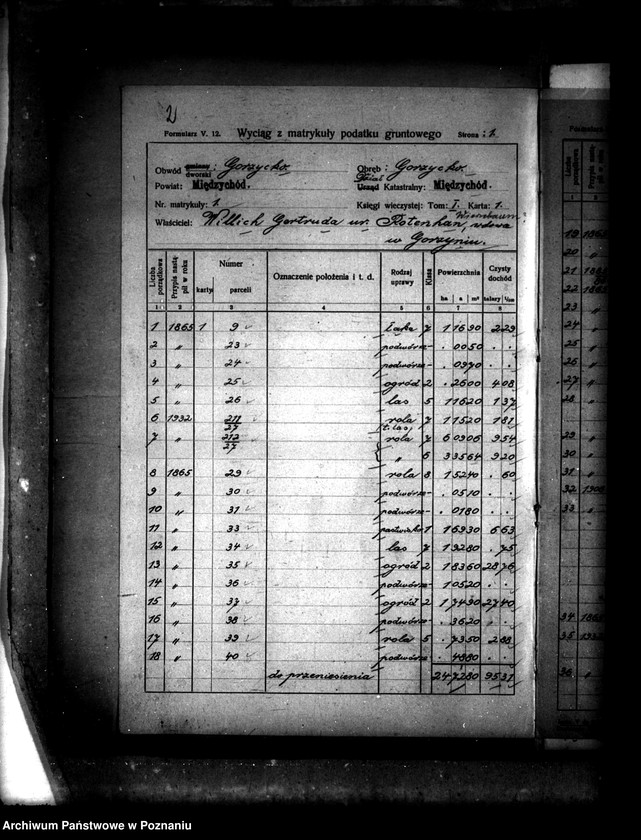 2
Formularz V. 12. Wyciąg z matrykuły podatku gruntowego Strona: 1.
Obwód gminny dworski: Gorzycko. Obręb: Gorzycko.
Powiat: Międzychód. Urząd Katastralny: Międzychód.
Nr. matrykuły: 1. Księgi wieczystej: Tom: I. Karta: 1.
Właściciel: Willich Gertruda ur. Rotenhan, wdowa
w Gorzyniu.
Liczba porządkowa Przypis nastąpił w roku Numer karty parceli Oznaczenie położenia i t. d. Rodzaj uprawy Klasa Powierzchnia ha a m² Czysty dochód talary 1/100
1 2 3 4 5 6 7 8
1 1865 1 9 łąka 7 1 16 90 2 29
2 " 23 podwórze - . 00 50 . .
3 " 24 podwórze - . 09 70 . .
4 " 25 ogród 2 . 26 00 4 08
5 " 26 las 5 1 16 20 1 37
6 1932 211/27 rola 7 1 15 20 1 81
(t. las)
7 " 212/27 rola 7 6 09 06 9 54
" 6 3 35 64 9 20
8 1865 29 rola 8 1 52 40 . 60
9 " 30 podwórze - . 05 10 . .
10 " 31 podwórze - . 01 80 . .
11 " 33 pastwisko 1 1 69 30 6 63
12 " 34 las 7 1 92 80 . 75
13 " 35 ogród 2 1 83 60 28 76
14 " 36 podwórze - 1 05 20 . .
15 " 37 ogród 2 1 74 90 27 40
16 " 38 podwórze - . 36 20 . .
17 " 39 rola 5 . 73 50 2 88
18 " 40 podwórze - . 48 80 .
do przeniesienia 24 72 80 95 31
Liczba porządkowa
Przypis nastą-
pił w roku
1
19 1865
20 "
21
22
23 "
24 "
25 "
26 "
27 "
28 "
29 "
30 "
31 "
32
33 "
34
35
36 "
Archiwum Państwowe w Poznaniu